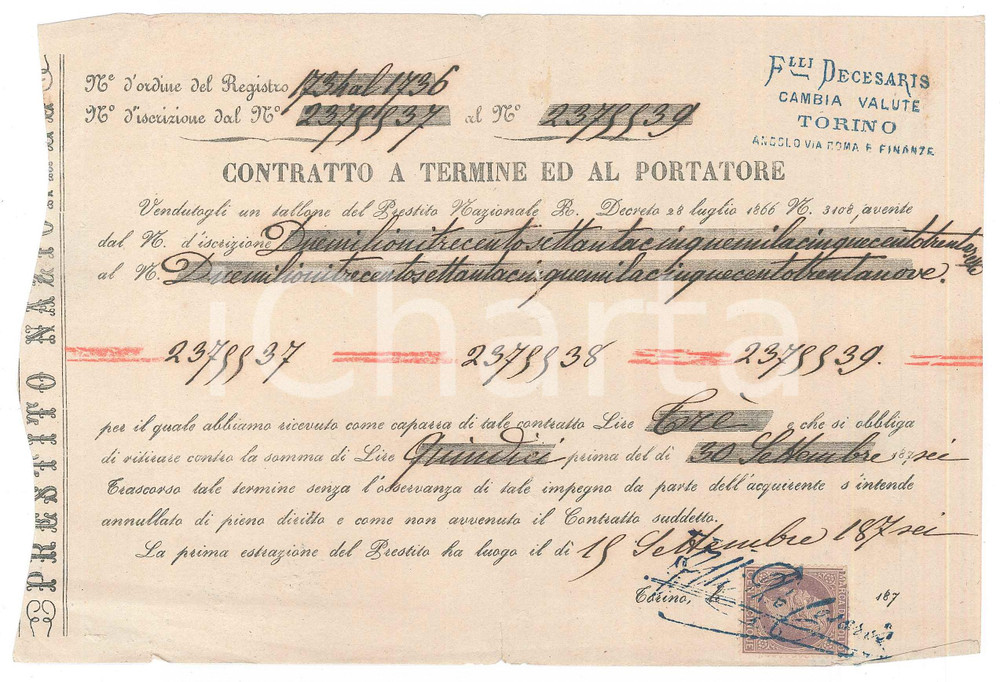 Nº d'ordine del Registro 1734 al 1736
Nº d'iscrizione dal Nº 2375537 al Nº 2375539
Flli DECESARIS
CAMBIA VALUTE
TORINO
ANGOLO VIA ROMA E FINANZE
CONTRATTO A TERMINE ED AL PORTATORE
Vendutogli un tallone del Prestito Nazionale R. Decreto 28 luglio 1866 N. 3108, avente
dal N. d'iscrizione Duemilionitrecentosettantacinquemilacinquecentotrentasette
al N. Duemilionitrecentosettantacinquemilacinquecentotrentanove.
2375537 2375538 2375539.
per il quale abbiamo ricevuto come caparra di tale contratto Lire Trè e che si obbliga
di ritirare contro la somma di Lire Quindici prima del dì 30 Settembre 187sei
Trascorso tale termine senza l'osservanza di tale impegno da parte dell'acquirente s'intende
annullato di pieno diritto e come non avvenuto il Contratto suddetto.
La prima estrazione del Prestito ha luogo il dì 15 Settembre 187sei
Torino, 187
PRESTITO NAZIO
iCharta